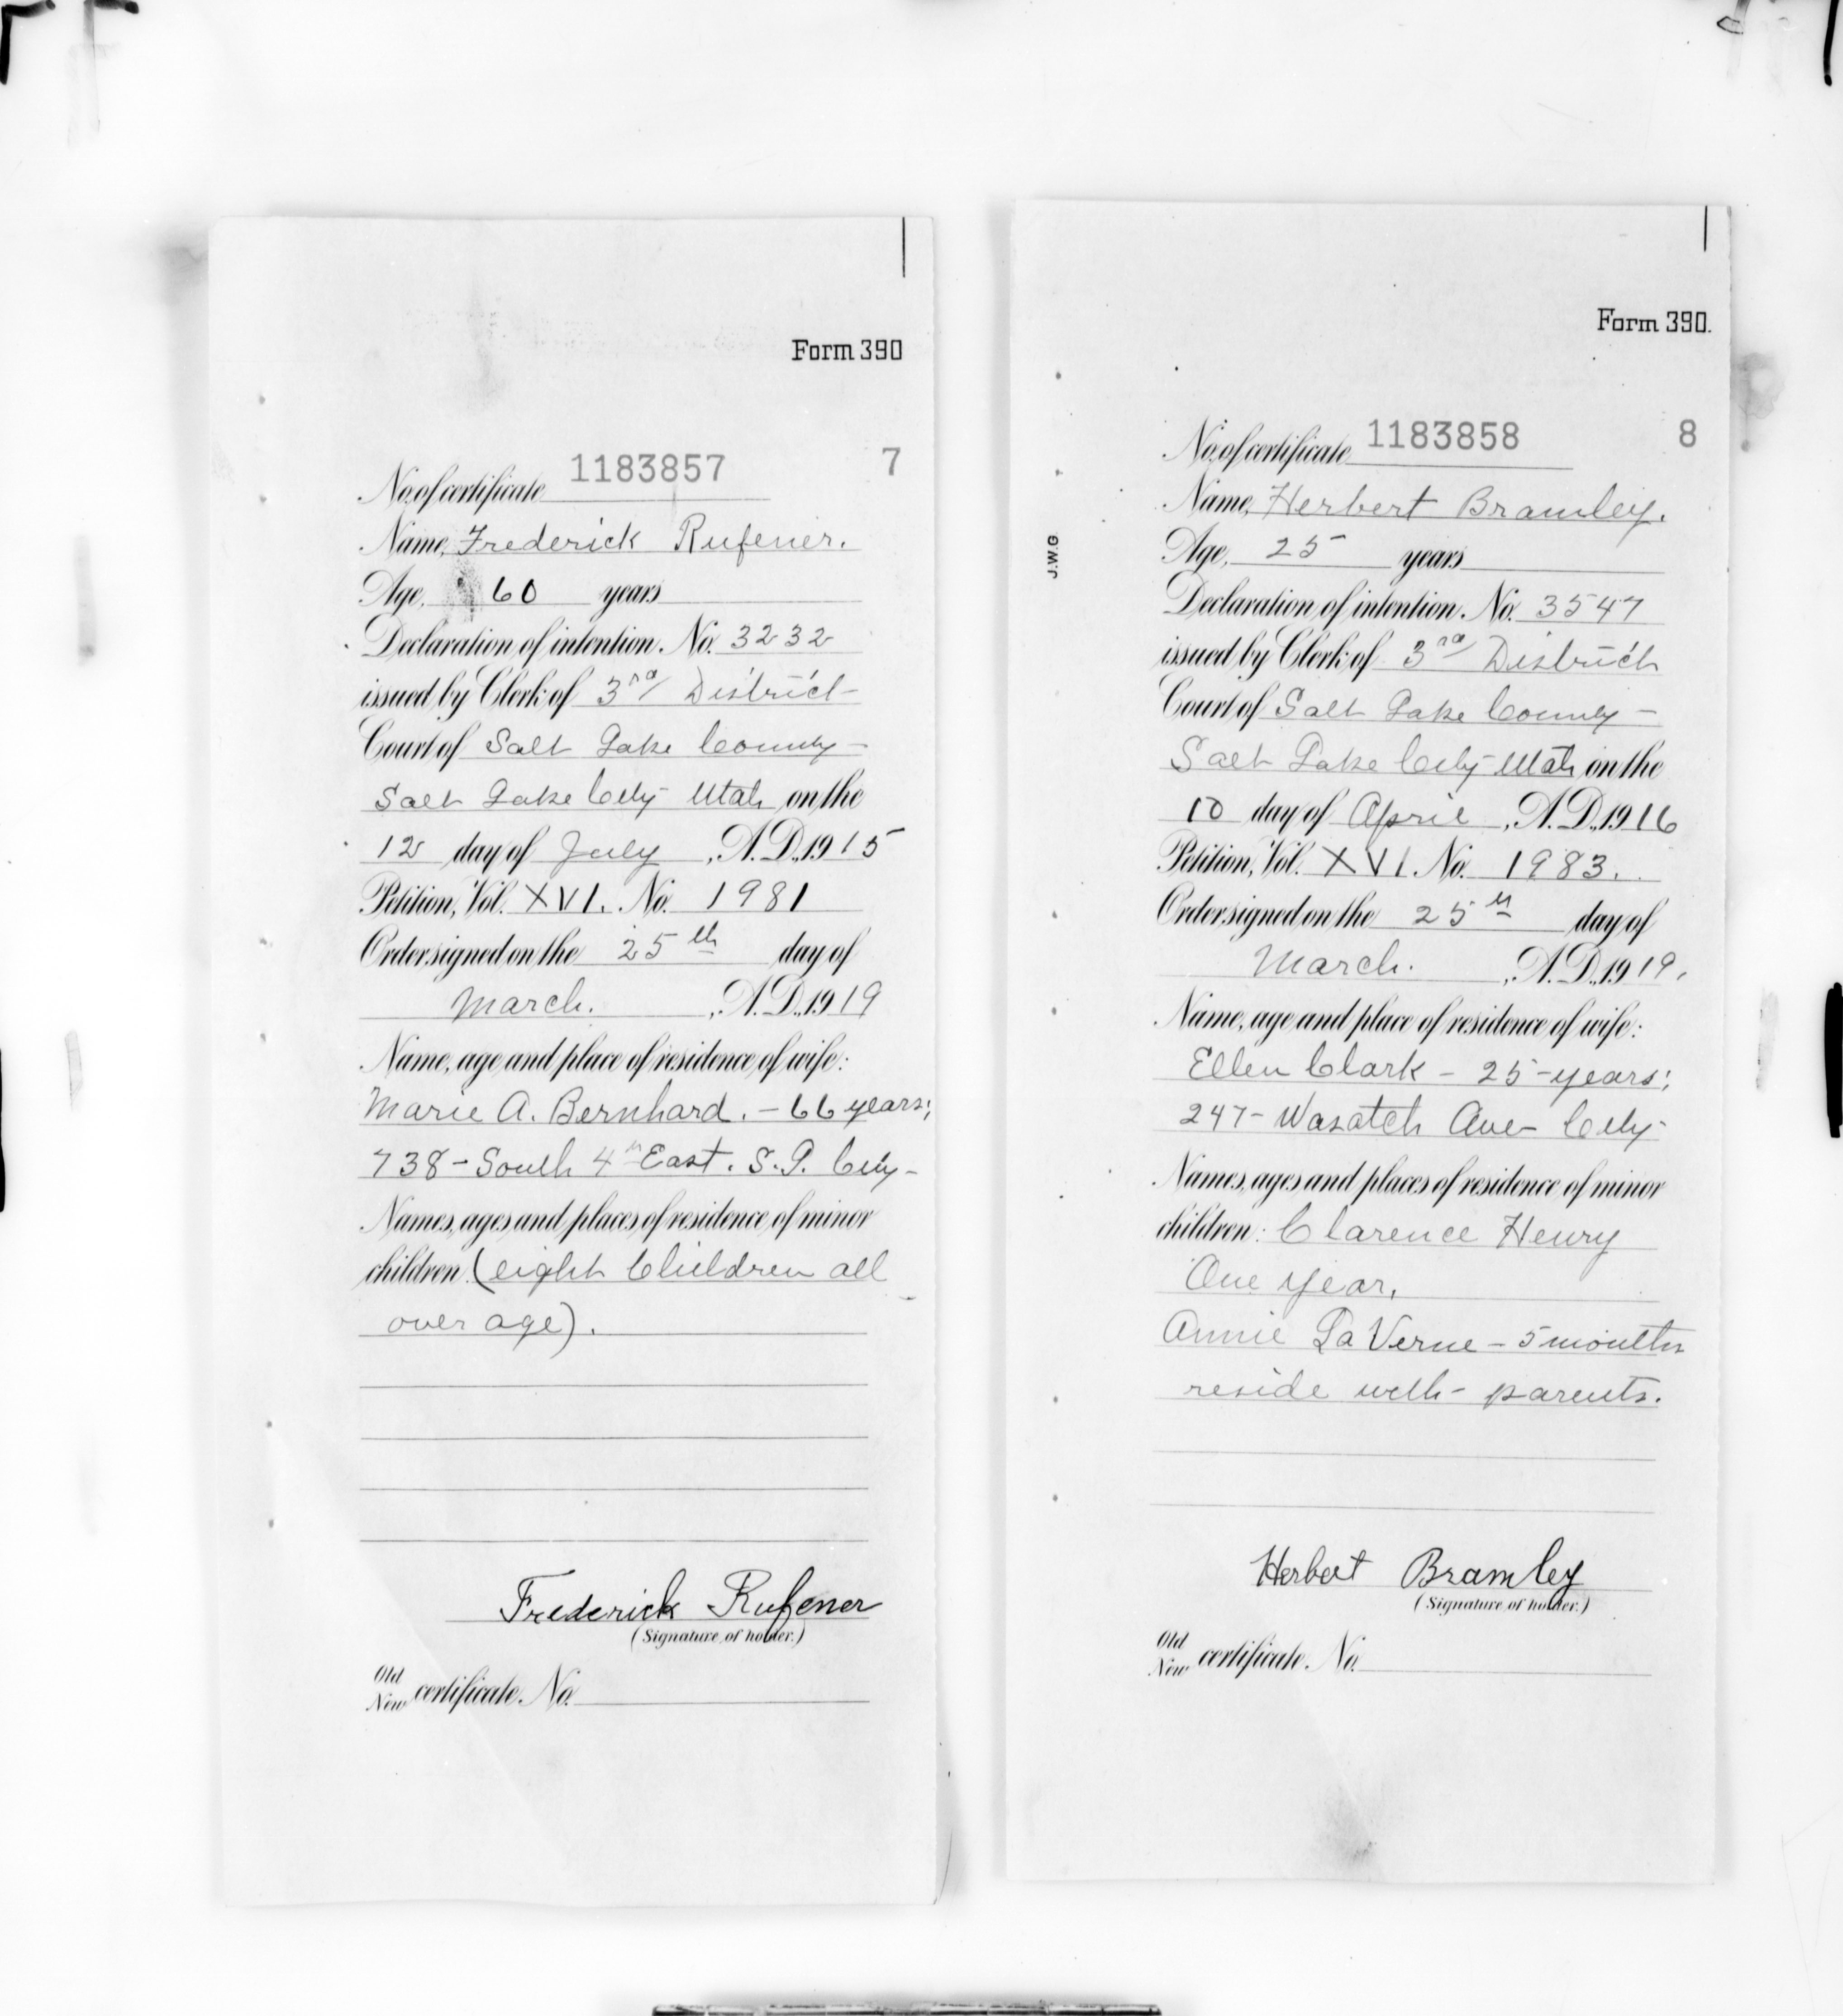 Form 390
No. of certificate 1183857 7
Name, Frederick Rufener.
Age, 60 years
Declaration of intention. No. 3232
issued by Clerk of 3rd District
Court of Salt Lake County -
Salt Lake City - Utah on the
12 day of July, A.D. 1915
Petition, Vol. XVI. No. 1981
Order signed on the 25th day of
March. , A.D. 1919
Name, age and place of residence of wife:
Marie A. Bernhard. - 66 years;
738 - South 4th East. S. L. City -
Names, ages and places of residence of minor
children (eight Children all
over age).
Frederick Rufener
(Signature of holder.)
Old
New certificate. No.
Form 390.
No. of certificate 1183858 8
J.W.G
Name, Herbert Bramley.
Age, 25 years
Declaration of intention. No. 3547
issued by Clerk of 3rd District
Court of Salt Lake County -
Salt Lake City - Utah on the
10 day of April, A.D. 1916
Petition, Vol. XVI. No. 1983.
Order signed on the 25th day of
March. , A.D. 1919.
Name, age and place of residence of wife:
Ellen Clark - 25 - years;
247 - Wasatch Ave - City -
Names, ages and places of residence of minor
children: Clarence Henry
One year,
Annie La Verne - 5 months
reside with - parents.
Herbert Bramley
(Signature of holder.)
Old
New certificate. No.